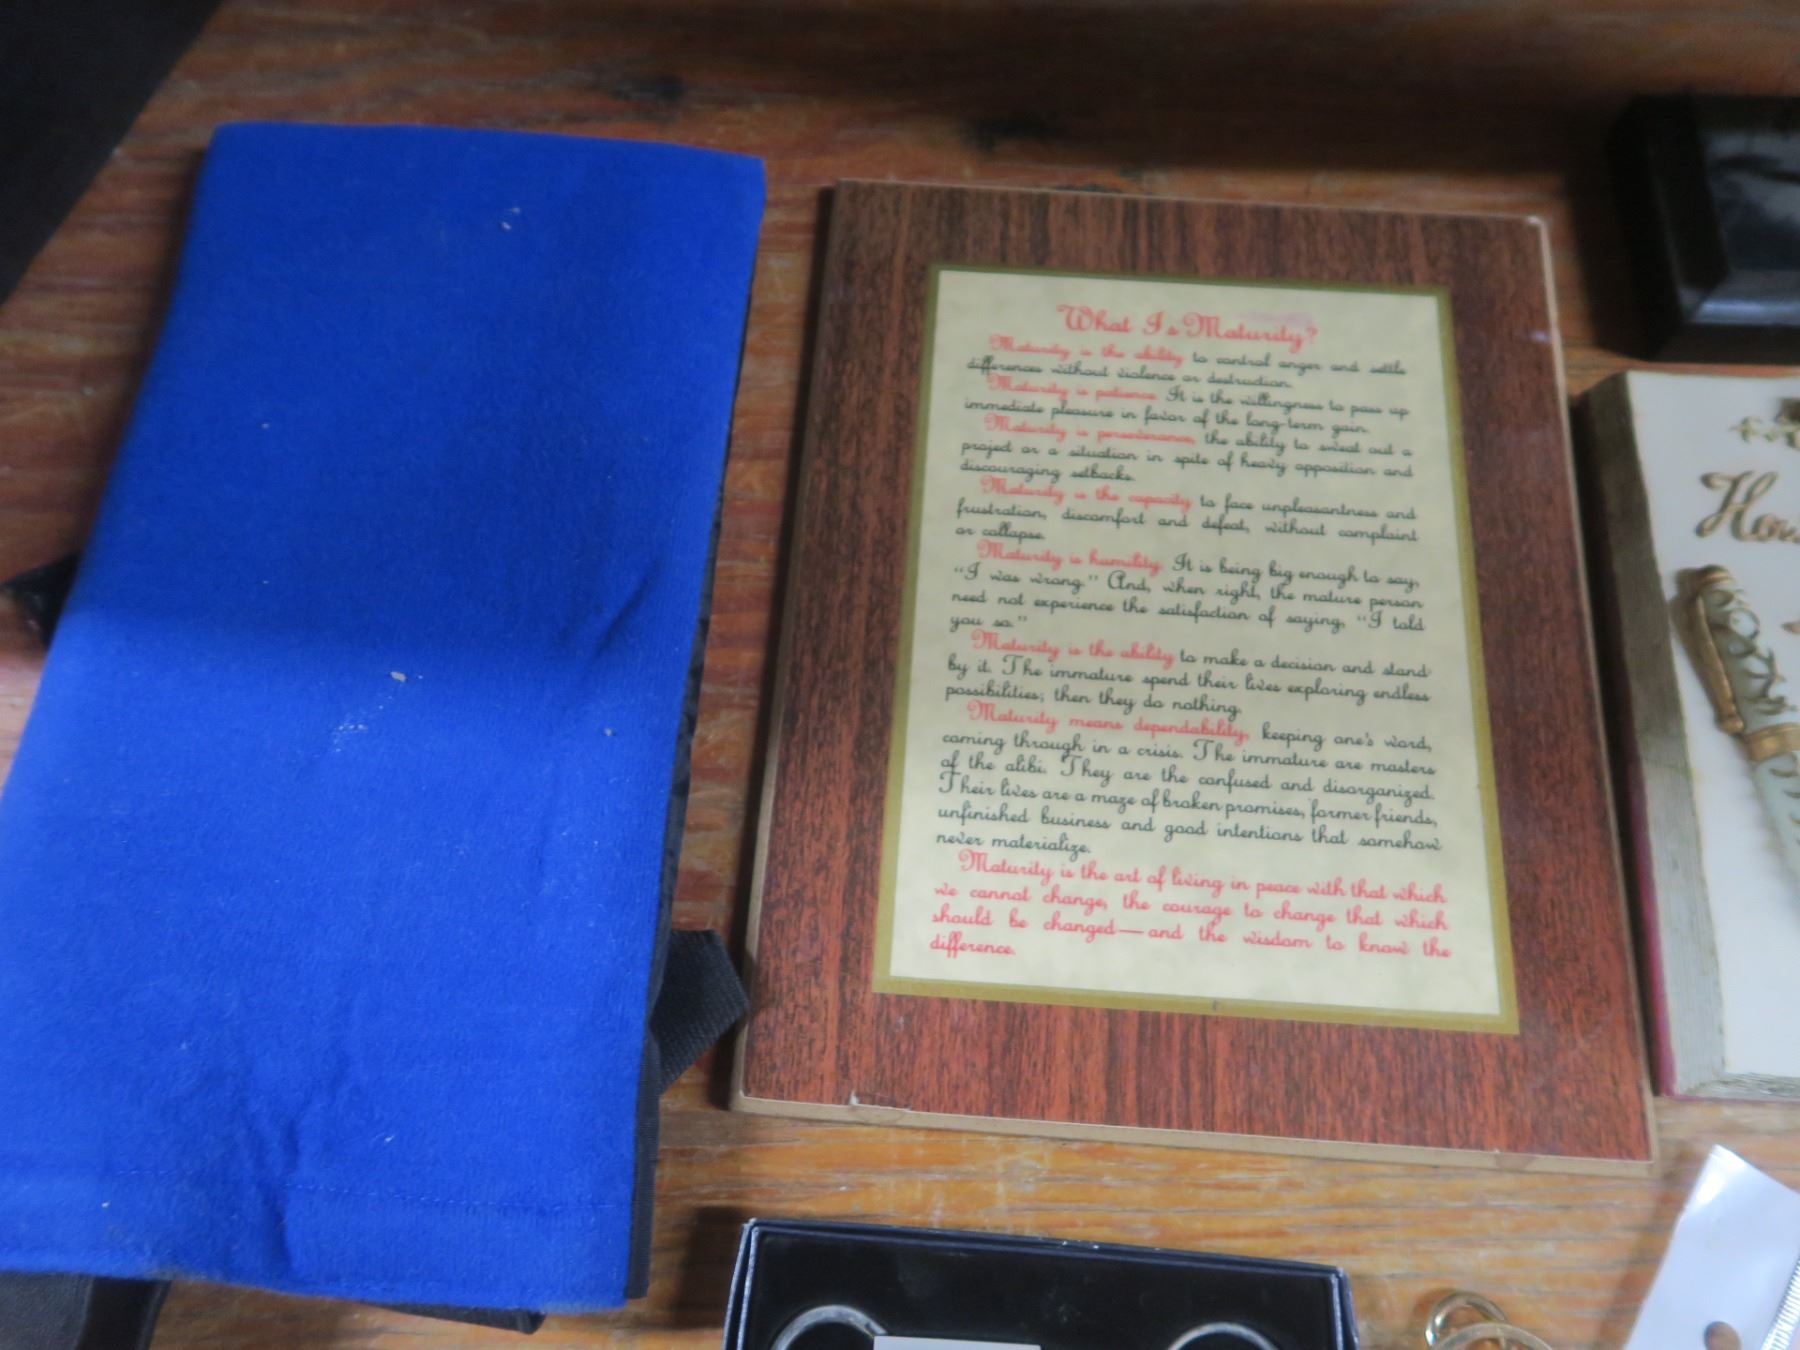 What Is Maturity?
Maturity is the ability to control anger and settle
differences without violence or destruction.
Maturity is patience. It is the willingness to pass up
immediate pleasure in favor of the long-term gain.
Maturity is perseverance, the ability to sweat out a
project or a situation in spite of heavy opposition and
discouraging setbacks.
Maturity is the capacity to face unpleasantness and
frustration, discomfort and defeat, without complaint
or collapse.
Maturity is humility. It is being big enough to say,
“I was wrong.” And, when right, the mature person
need not experience the satisfaction of saying, “I told
you so.”
Maturity is the ability to make a decision and stand
by it. The immature spend their lives exploring endless
possibilities; then they do nothing.
Maturity means dependability, keeping one's word,
coming through in a crisis. The immature are masters
of the alibi. They are the confused and disorganized.
Their lives are a maze of broken promises, former friends,
unfinished business and good intentions that somehow
never materialize.
Maturity is the art of living in peace with that which
we cannot change, the courage to change that which
should be changed — and the wisdom to know the
difference.